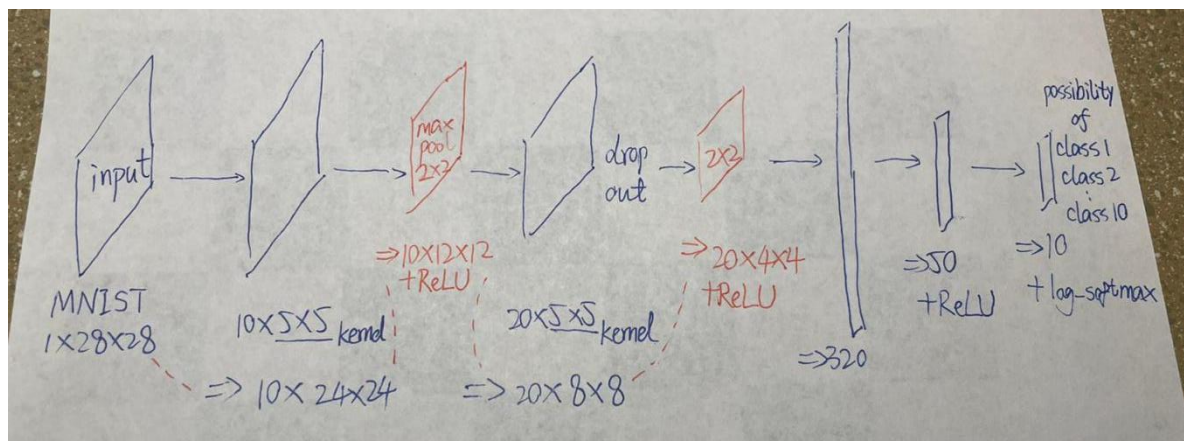 input
MNIST
1×28×28
10×5×5 kernel
⇒ 10×24×24
max
pool
2×2
⇒10×12×12
+ReLU
20×5×5 kernel
⇒ 20×8×8
drop
out
2×2
⇒ 20×4×4
+ReLU
⇒320
⇒50
+ReLU
possibility
of
class1
class2
⋮
class10
⇒10
+log_softmax